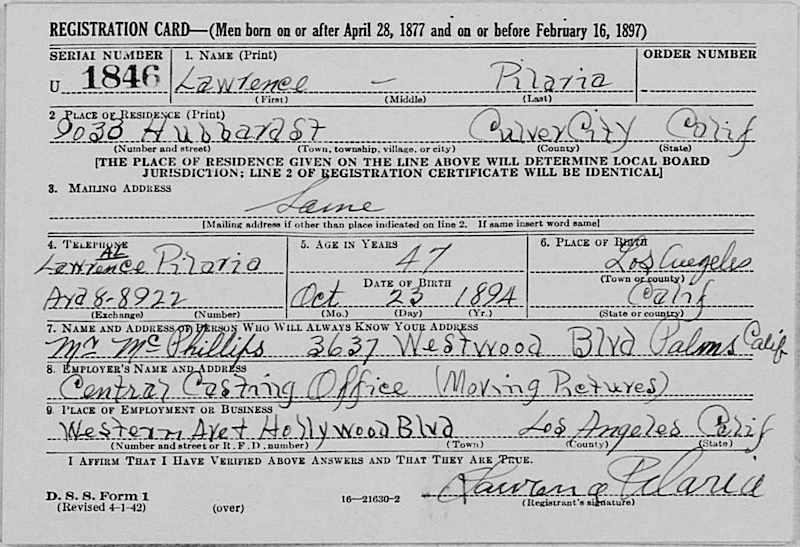 REGISTRATION CARD—(Men born on or after April 28, 1877 and on or before February 16, 1897)
SERIAL NUMBER 1. NAME (Print) ORDER NUMBER
U 1846 Lawrence — Pilaria
(First) (Middle) (Last)
2 PLACE OF RESIDENCE (Print)
9038 Hubbard St Culver City Calif
(Number and street) (Town, township, village, or city) (County) (State)
[THE PLACE OF RESIDENCE GIVEN ON THE LINE ABOVE WILL DETERMINE LOCAL BOARD
JURISDICTION; LINE 2 OF REGISTRATION CERTIFICATE WILL BE IDENTICAL]
3. MAILING ADDRESS
Same
[Mailing address if other than place indicated on line 2. If same insert word same]
4. TELEPHONE 5. AGE IN YEARS 6. PLACE OF BIRTH
Lawrence Pilaria 47 Los Angeles
DATE OF BIRTH (Town or county)
Ard 8-8922 Oct 23 1894 Calif
(Exchange) (Number) (Mo.) (Day) (Yr.) (State or country)
7. NAME AND ADDRESS OF PERSON WHO WILL ALWAYS KNOW YOUR ADDRESS
Mr McPhillips 3637 Westwood Blvd Palms Calif
8. EMPLOYER'S NAME AND ADDRESS
Central Casting Office (Moving Pictures)
9. PLACE OF EMPLOYMENT OR BUSINESS
Western Ave + Hollywood Blvd Los Angeles Calif
(Number and street or R. F. D. number) (Town) (County) (State)
I AFFIRM THAT I HAVE VERIFIED ABOVE ANSWERS AND THAT THEY ARE TRUE.
D. S. S. Form 1 Lawrence Pilaria
(Revised 4-1-42) (over) 16—21630-2 (Registrant's signature)